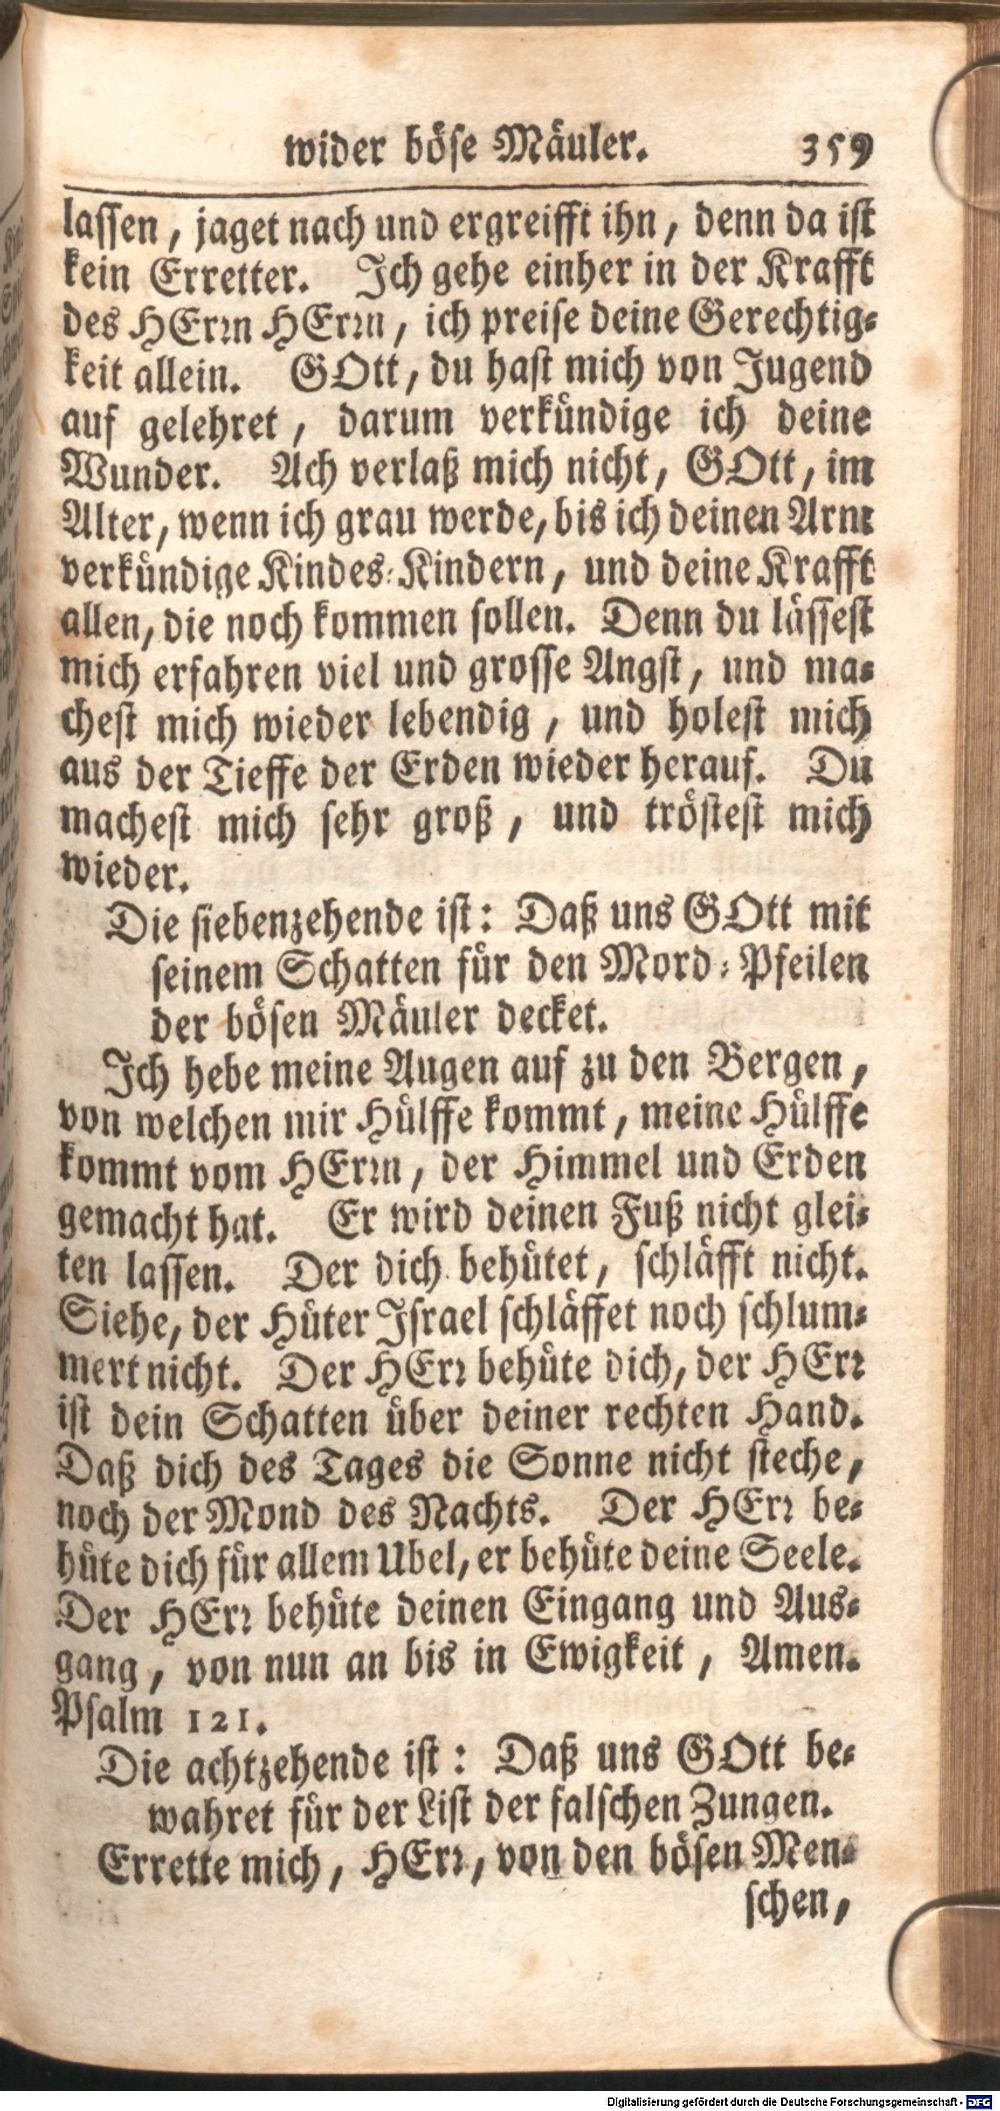 wider böse Mäuler. 359
lassen, jaget nach und ergreifft ihn, denn da ist
kein Erretter. Ich gehe einher in der Krafft
des HErrn HErrn, ich preise deine Gerechtig-
keit allein. GOtt, du hast mich von Jugend
auf gelehret, darum verkündige ich deine
Wunder. Ach verlaß mich nicht, GOtt, im
Alter, wenn ich grau werde, bis ich deinen Arm
verkündige Kindes-Kindern, und deine Krafft
allen, die noch kommen sollen. Denn du lässest
mich erfahren viel und grosse Angst, und ma-
chest mich wieder lebendig, und holest mich
aus der Tieffe der Erden wieder herauf. Du
machest mich sehr groß, und tröstest mich
wieder.
Die siebenzehende ist: Daß uns GOtt mit
seinem Schatten für den Mord-Pfeilen
der bösen Mäuler decket.
Ich hebe meine Augen auf zu den Bergen,
von welchen mir Hülffe kommt, meine Hülffe
kommt vom HErrn, der Himmel und Erden
gemacht hat. Er wird deinen Fuß nicht glei-
ten lassen. Der dich behütet, schläfft nicht.
Siehe, der Hüter Israel schläffet noch schlum-
mert nicht. Der HErr behüte dich, der HErr
ist dein Schatten über deiner rechten Hand.
Daß dich des Tages die Sonne nicht steche,
noch der Mond des Nachts. Der HErr be-
hüte dich für allem Ubel, er behüte deine Seele.
Der HErr behüte deinen Eingang und Aus-
gang, von nun an bis in Ewigkeit, Amen.
Psalm 121.
Die achtzehende ist: Daß uns GOtt be-
wahret für der List der falschen Zungen.
Errette mich, HErr, von den bösen Men-
schen,
Digitalisierung gefördert durch die Deutsche Forschungsgemeinschaft - DFG